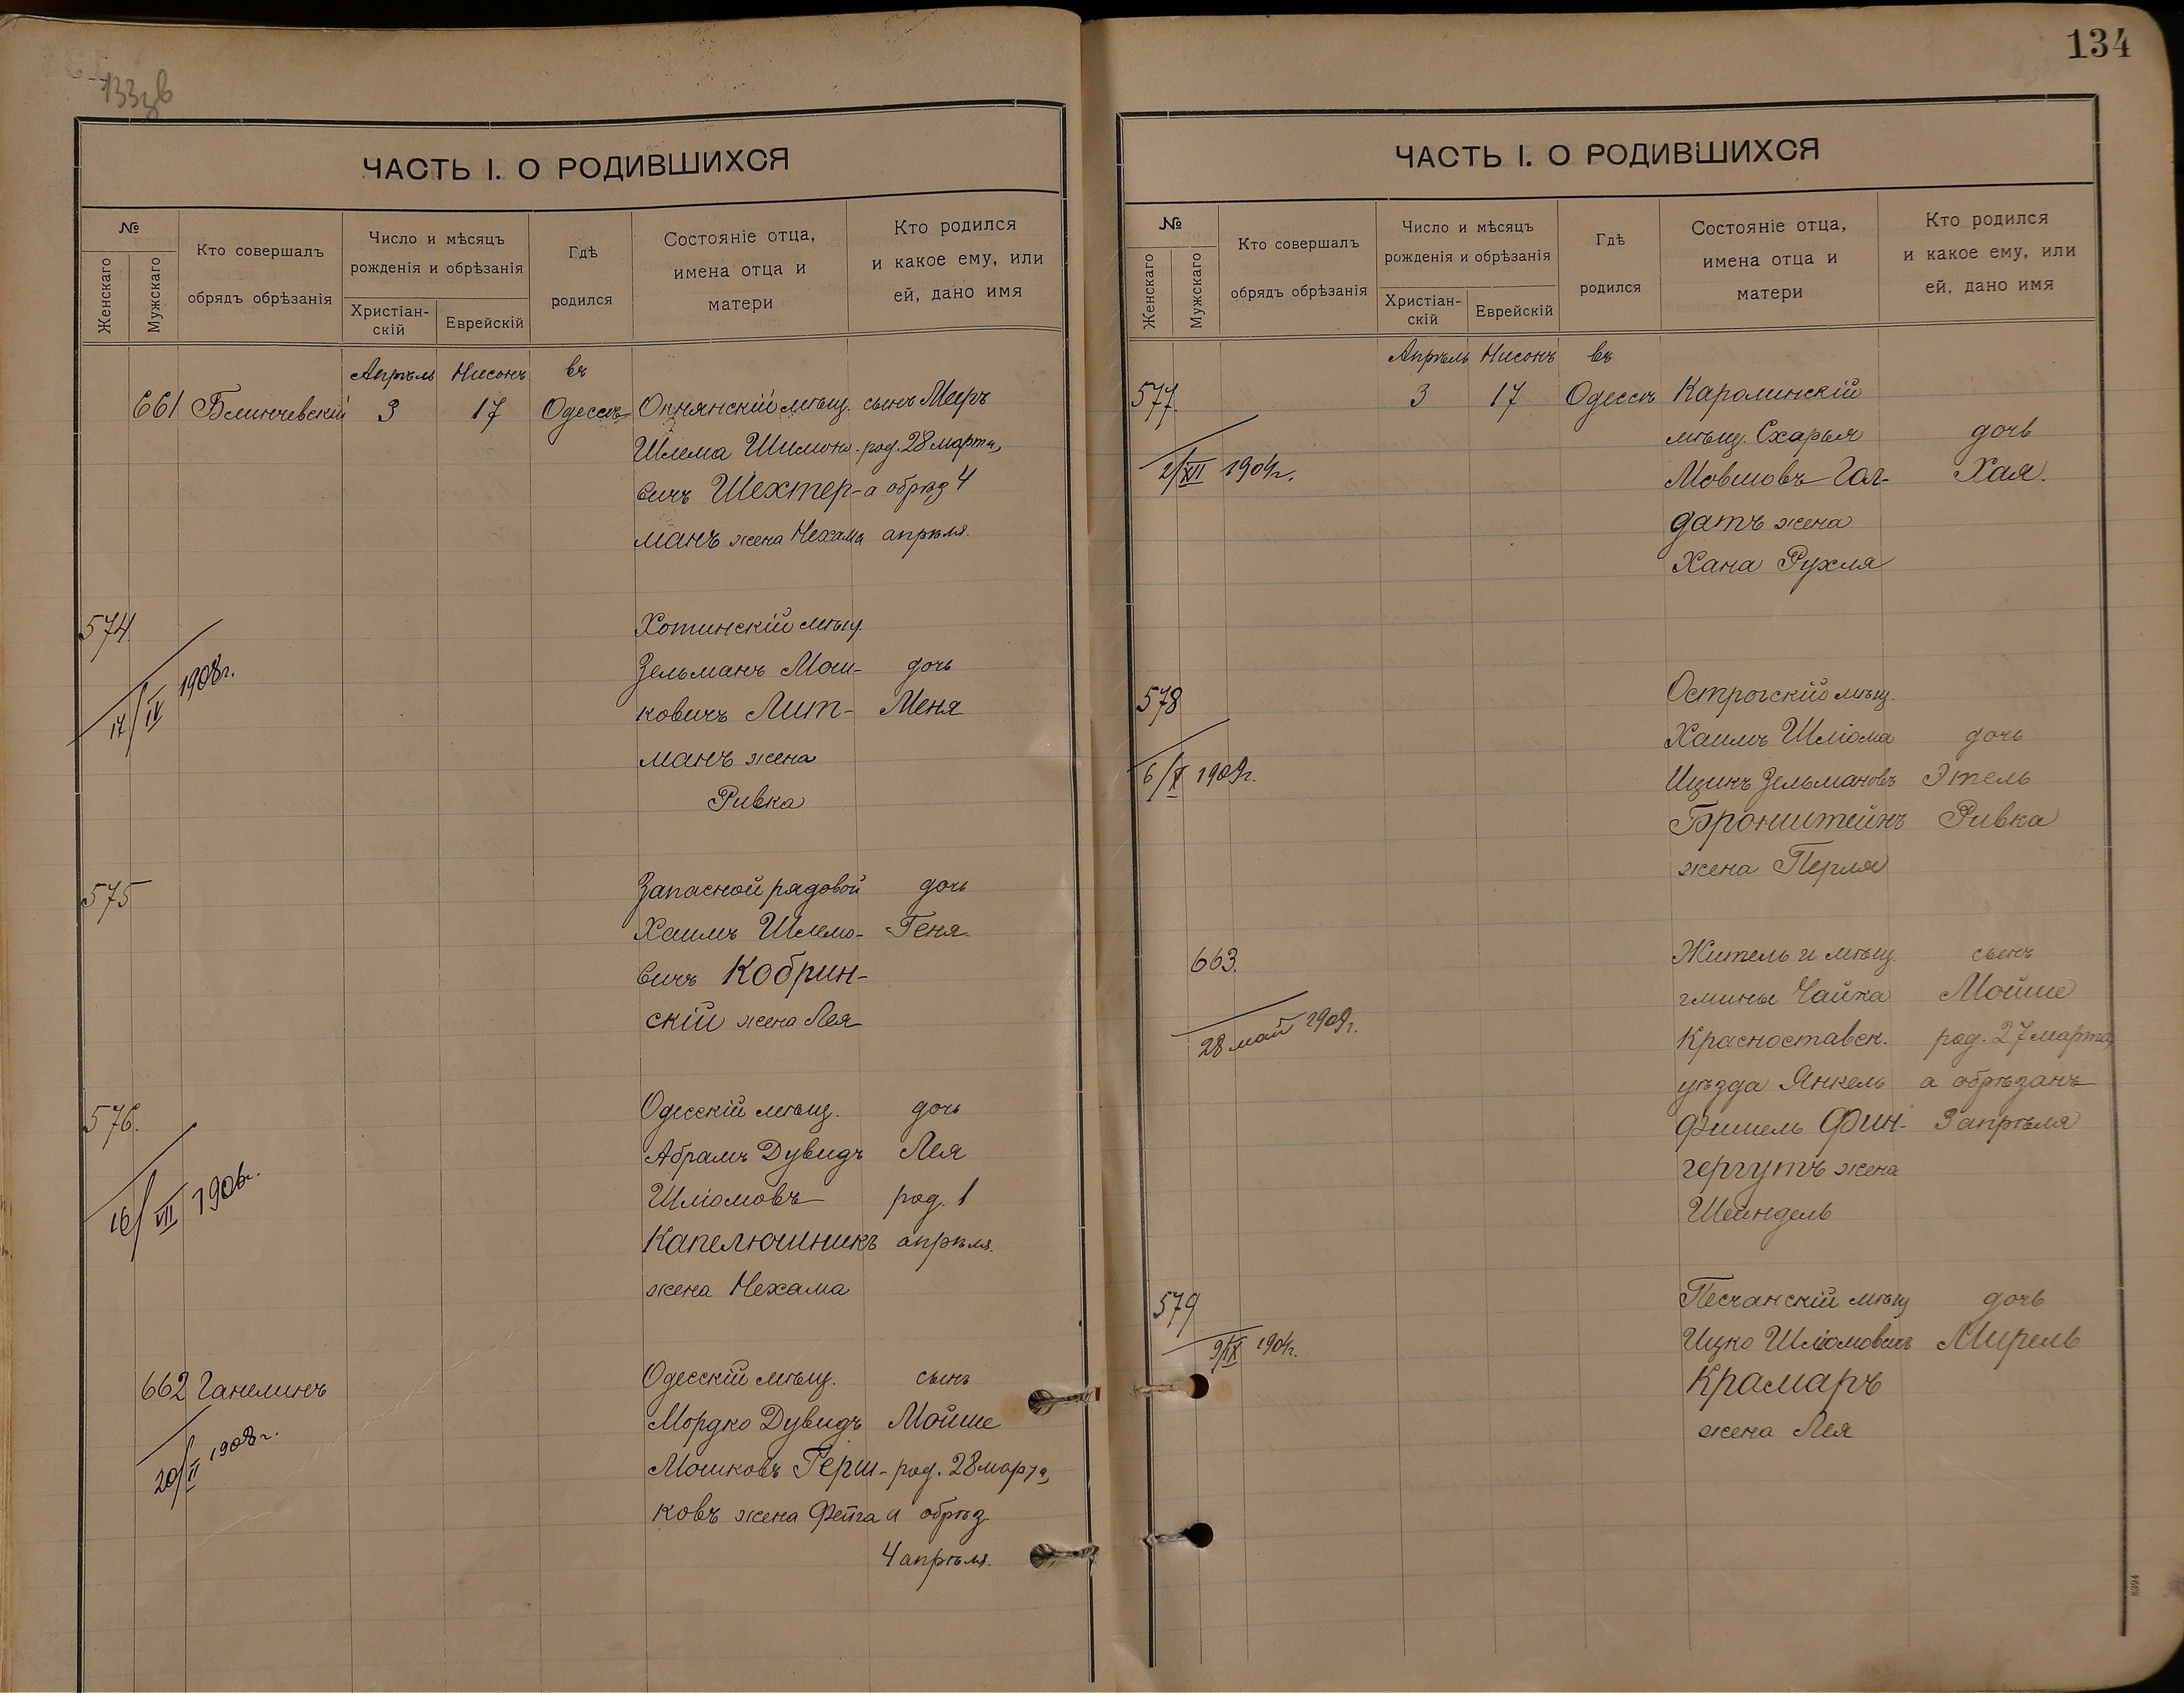 133 зв
ЧАСТЬ I. О РОДИВШИХСЯ
№
Женскаго
Мужскаго
Кто совершалъ
обрядъ обрѣзанія
Число и мѣсяцъ
рожденія и обрѣзанія
Христіан-
скій
Еврейскій
Гдѣ
родился
Состояніе отца,
имена отца и
матери
Кто родился
и какое ему, или
ей, дано имя
Апрѣль Нисонъ въ
661 Блинчевскій 3 17 Одессѣ Окнянскій мѣщ. сынъ Мееръ
Шлема Шимоно- род. 28 марта,
вичъ Шехтер- а обрѣз 4
манъ жена Нехама апрѣля.
574. Хотинскій мѣщ.
Зельманъ Мош- дочь
17/IV 1908г. ковичъ Лит- Меня
манъ жена
Ривка
575 Запасной рядовой дочь
Хаимъ Шлемо- Геня.
вичъ Кобрин-
скій жена Лея
576. Одесскій мѣщ. дочь
Абрамъ Дувидъ Лея
16/VII 1906г. Шліомовъ род. 1
Капелюшникъ апрѣля.
жена Нехама
662 Ганелинъ Одесскій мѣщ. сынъ
Мордко Дувидъ Мойше
20/II 1908г. Мошковъ Герш- род. 28 марта,
ковъ жена Фейга а обрѣз.
4 апрѣля.
134
ЧАСТЬ I. О РОДИВШИХСЯ
№
Женскаго
Мужскаго
Кто совершалъ
обрядъ обрѣзанія
Число и мѣсяцъ
рожденія и обрѣзанія
Христіан-
скій
Еврейскій
Гдѣ
родился
Состояніе отца,
имена отца и
матери
Кто родился
и какое ему, или
ей, дано имя
Апрѣль Нисонъ въ
577. 3 17 Одессѣ Каролинскій
мѣщ. Схарья дочь
2/XII 1904г. Мовшовъ Гол- Хая.
датъ жена
Хана Рухля
578 Острогскій мѣщ.
Хаимъ Шліома дочь
6/X 1909г. Ицикъ Зельмановъ Этель
Бронштейнъ Ривка
жена Перля
663. Житель и мѣщ. сынъ
гмины Чайка Мойше
28 май 1909г. Красноставск. род. 27 марта,
уѣзда Янкель а обрѣзанъ
Фишель Фин- 3 апрѣля
гергутъ жена
Шейндель
579 Песчанскій мѣщ дочь
9/IX 1904г. Ицко Шліомовичъ Мирель
Крамаръ
жена Лея